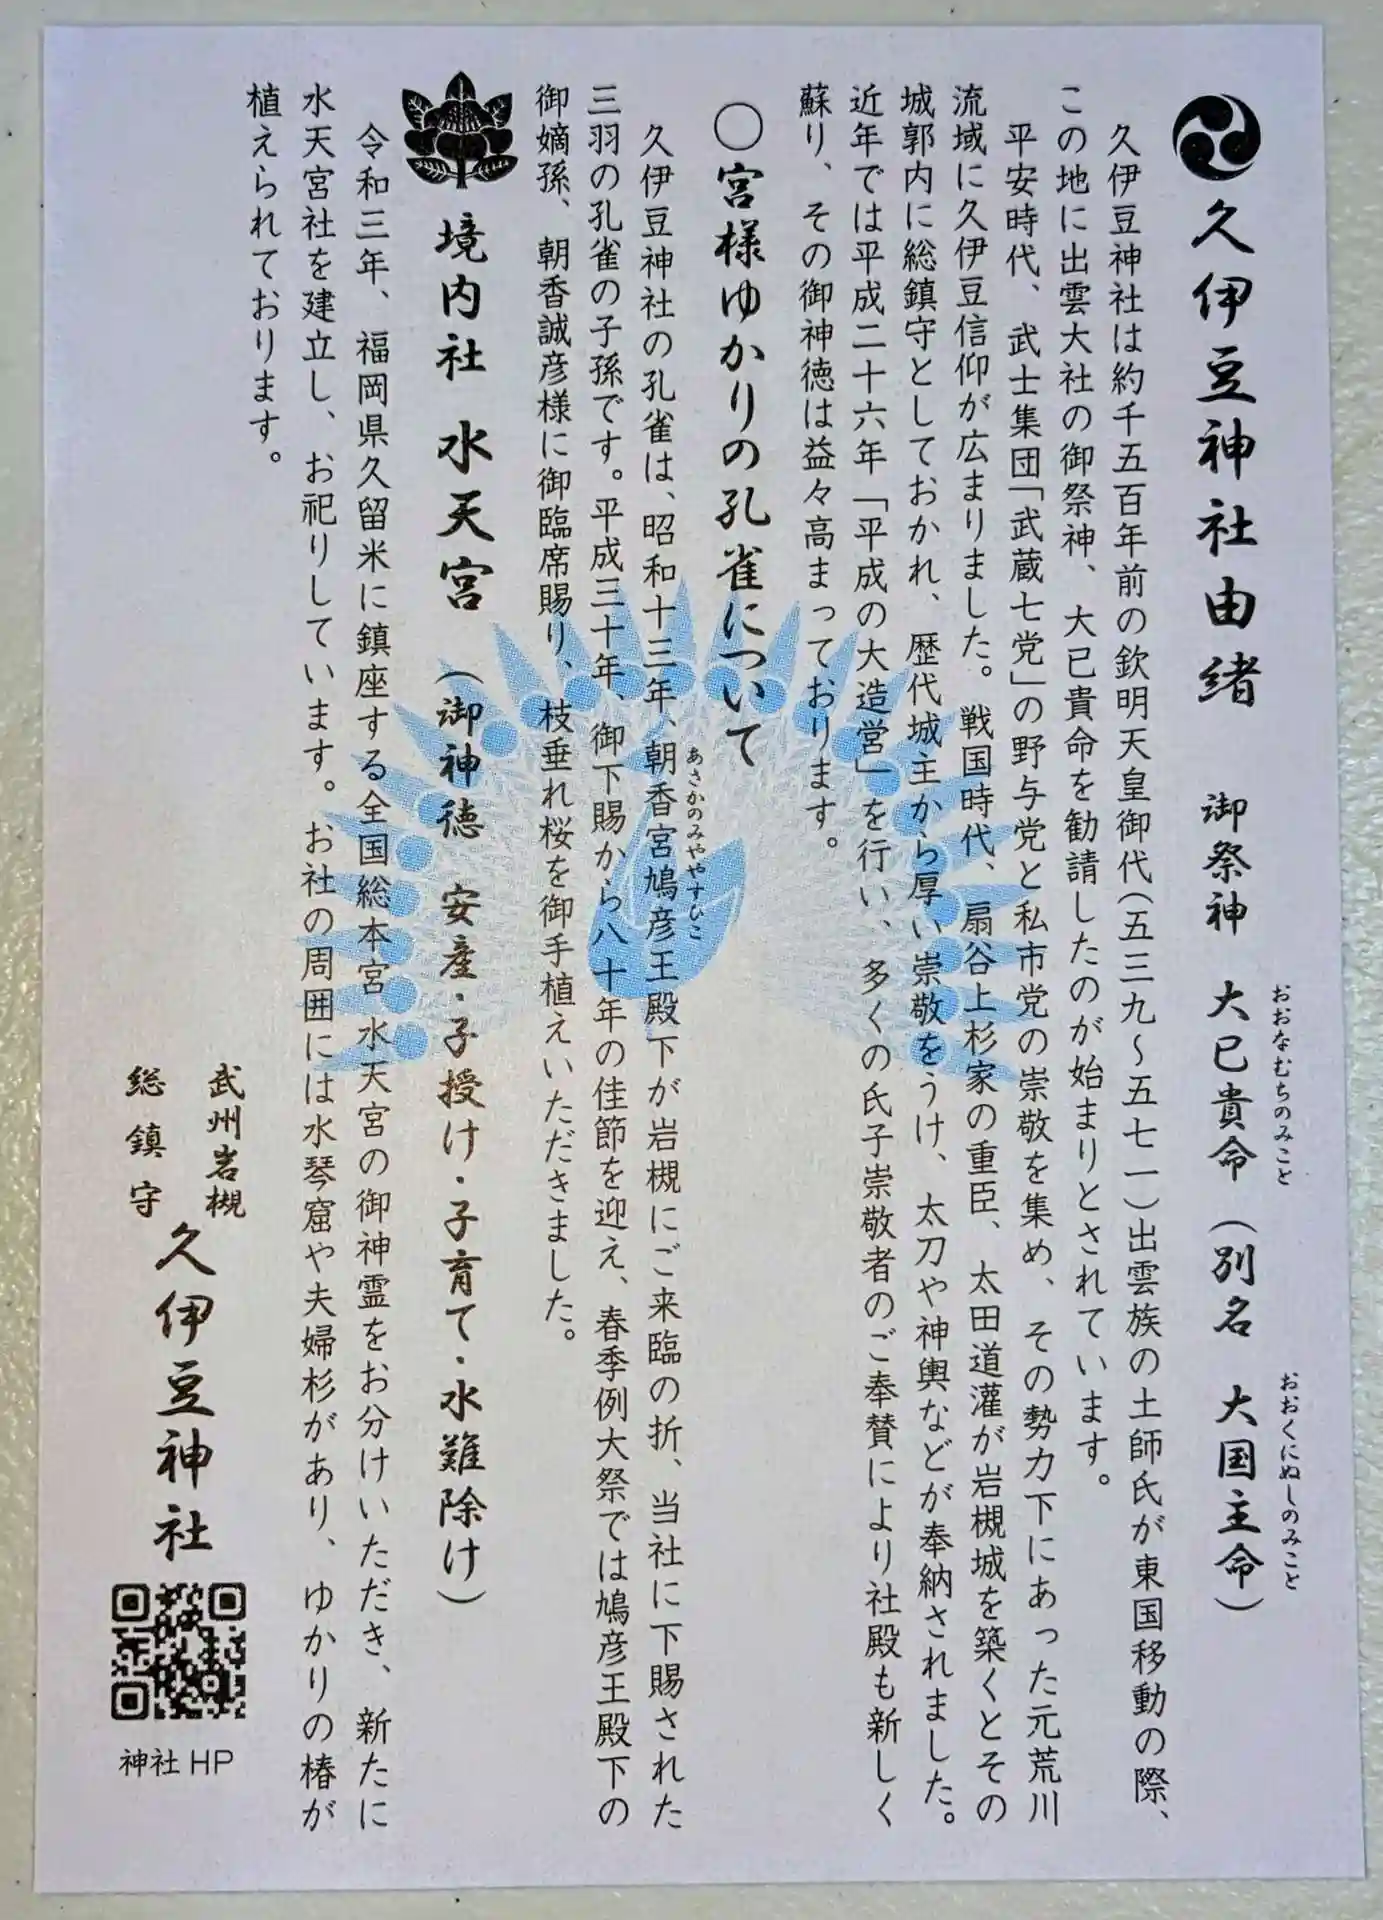 久伊豆神社由緒　御祭神　大已貴命（別名　大国主命）
おおなむちのみこと
おおくにぬしのみこと
久伊豆神社は約千五百年前の欽明天皇御代（五三九～五七一）出雲族の土師氏が東国移動の際、
この地に出雲大社の御祭神、大已貴命を勧請したのが始まりとされています。
平安時代、武士集団「武蔵七党」の野与党と私市党の崇敬を集め、その勢力下にあった元荒川
流域に久伊豆信仰が広まりました。戦国時代、扇谷上杉家の重臣、太田道灌が岩槻城を築くとその
城郭内に総鎮守としておかれ、歴代城主から厚い崇敬をうけ、太刀や神輿などが奉納されました。
近年では平成二十六年「平成の大造営」を行い、多くの氏子崇敬者のご奉賛により社殿も新しく
蘇り、その御神徳は益々高まっております。
○宮様ゆかりの孔雀について
久伊豆神社の孔雀は、昭和十三年、朝香宮鳩彦王殿下が岩槻にご来臨の折、当社に下賜された
あさかのみややすひこ
三羽の孔雀の子孫です。平成三十年、御下賜から八十年の佳節を迎え、春季例大祭では鳩彦王殿下の
御嫡孫、朝香誠彦様に御臨席賜り、枝垂れ桜を御手植えいただきました。
境内社　水天宮　（御神徳　安産・子授け・子育て・水難除け）
令和三年、福岡県久留米に鎮座する全国総本宮　水天宮の御神霊をお分けいただき、新たに
水天宮社を建立し、お祀りしています。お社の周囲には水琴窟や夫婦杉があり、ゆかりの椿が
植えられております。
武州岩槻
総鎮守
久伊豆神社
神社HP